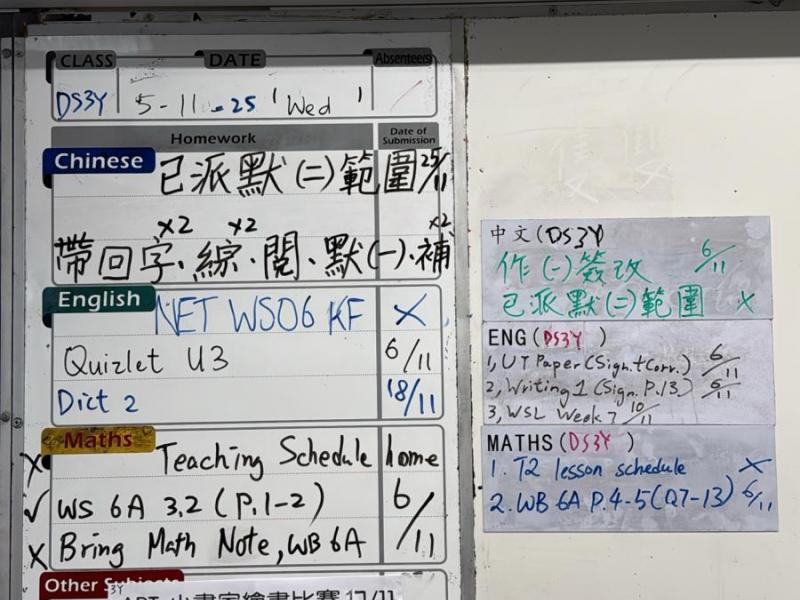 CLASS DATE Absentees
DS3Y 5-11-25 Wed
Homework Date of Submission
Chinese
已派默(二)範圍 25/11
x2 x2 x2
帶回字、綜、閱、默(一)、補
English
NET WS06 KF ×
Quizlet U3 6/11
Dict 2 18/11
Maths
× Teaching Schedule home
✓ WS 6A 3.2 (P.1-2) 6/11
× Bring Math Note, WB 6A
Other Subjects
3Y
中文(DS3Y
作(一)簽改 6/11
已派默(二)範圍 ×
ENG(DS3Y )
1, UT Paper (Sign.+Corr.) 6/11
2, Writing 1 (Sign. P.13) 6/11
3, WSL Week 7 10/11
MATHS(DS3Y )
1. T2 lesson schedule ×
2. WB 6A P.4-5(Q7-13) 6/11